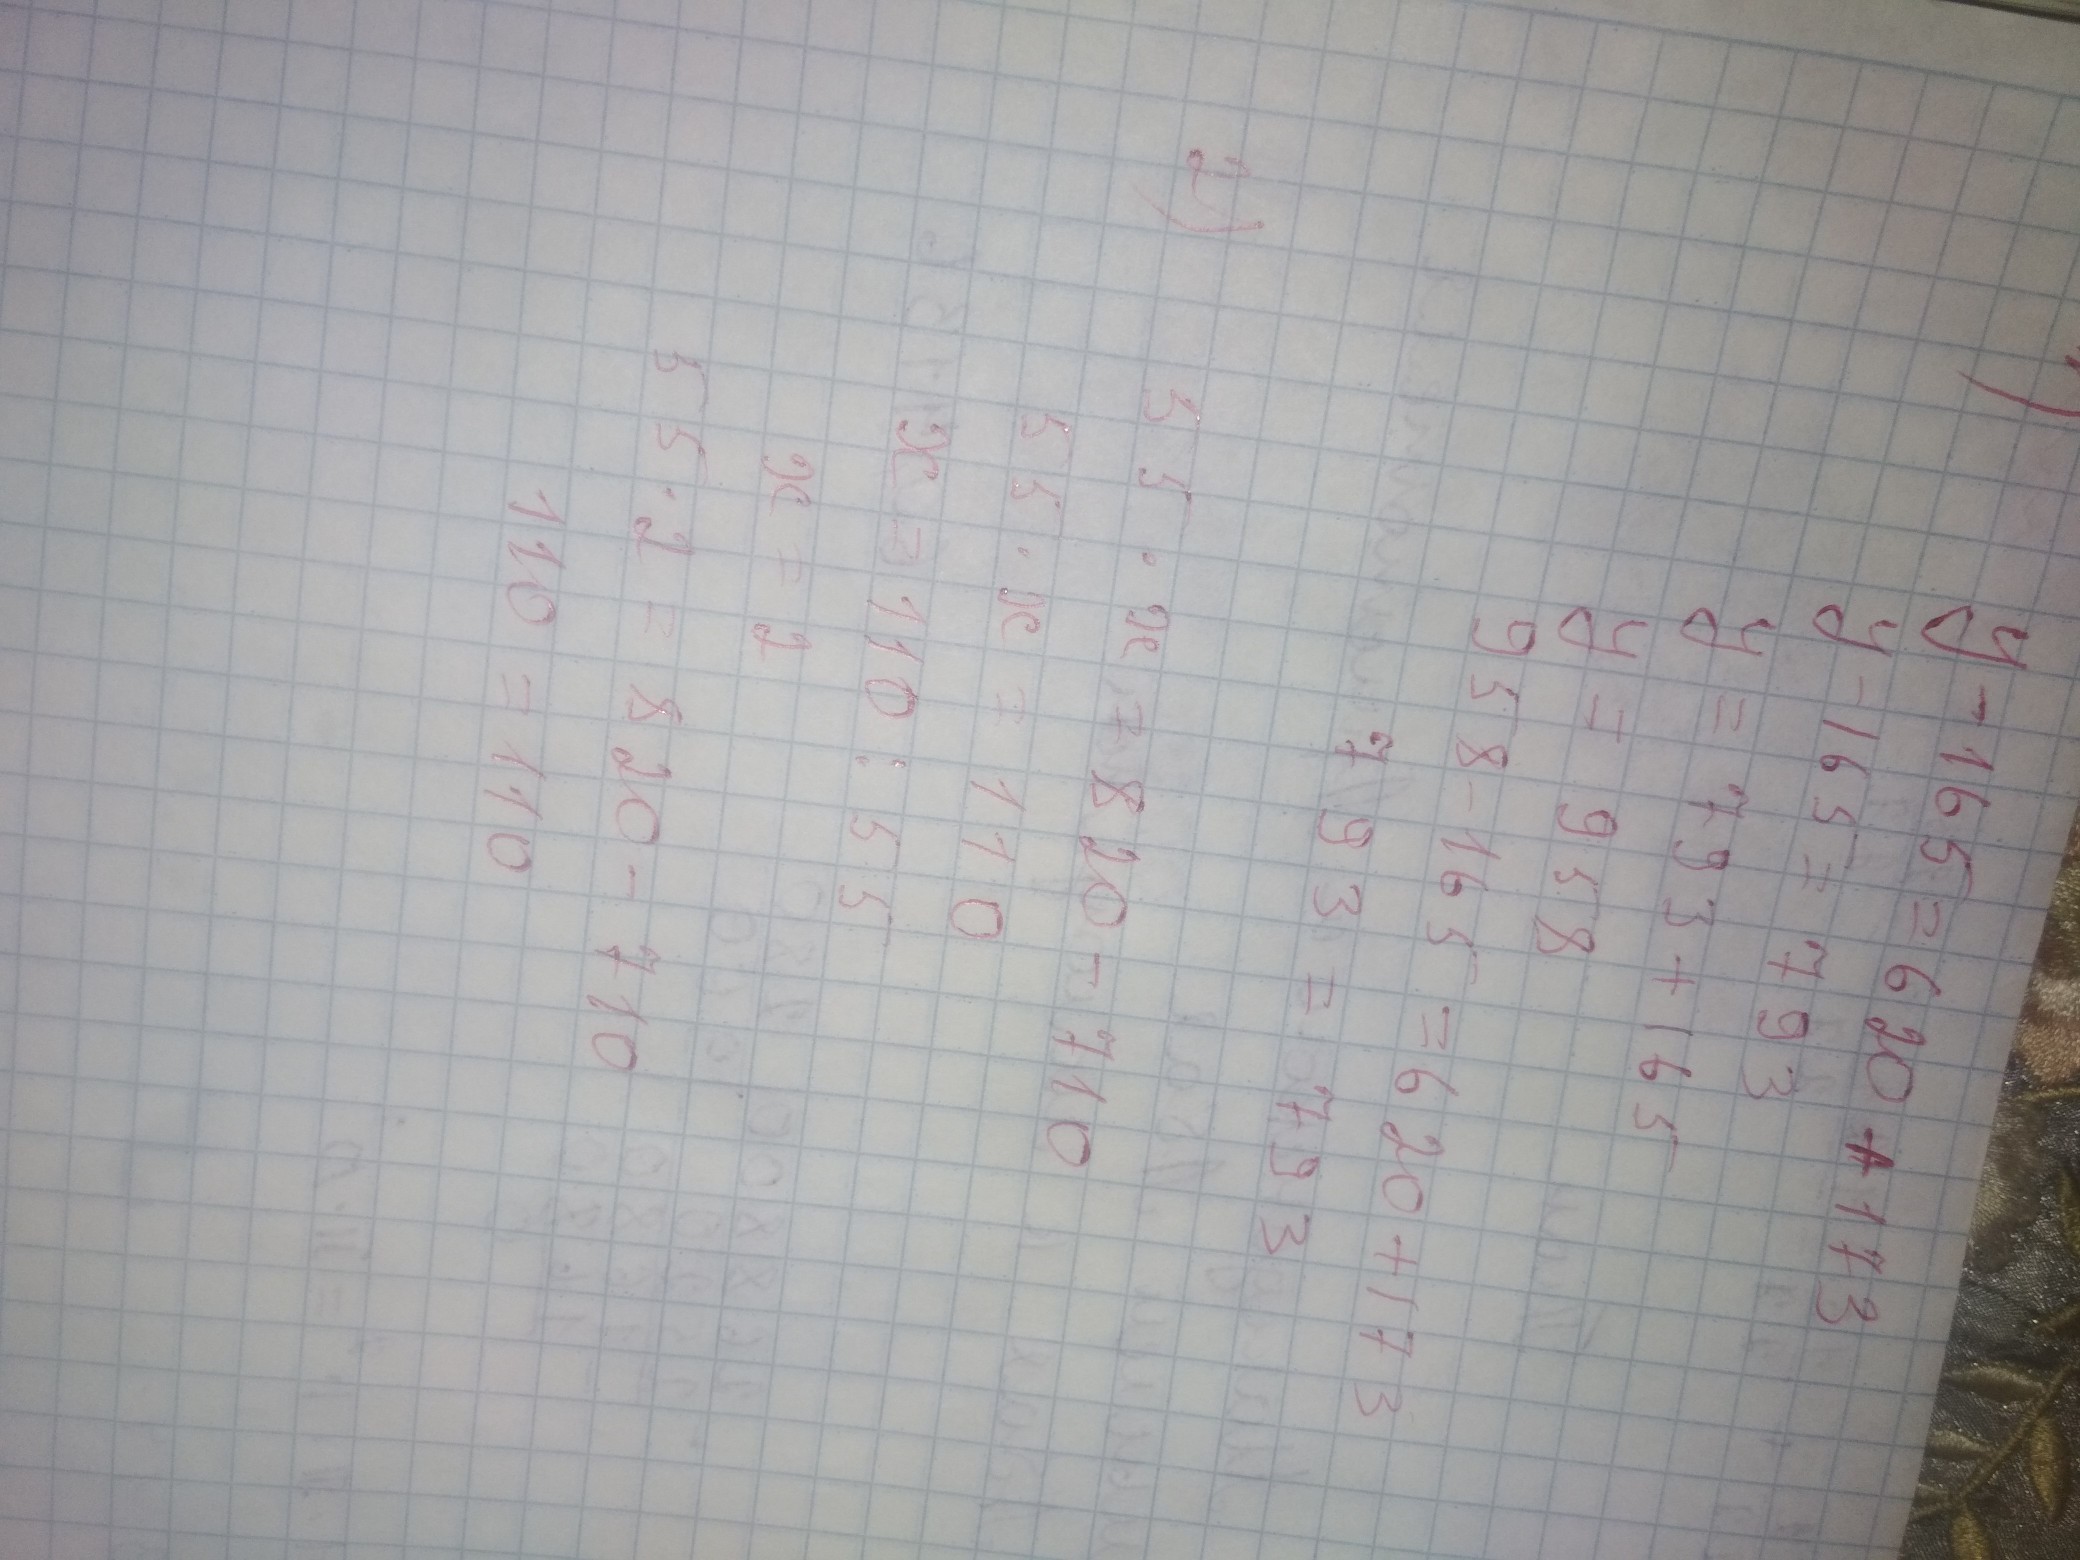 1)
y - 165 = 620 + 173
y - 165 = 793
y = 793 + 165
y = 958
958 - 165 = 620 + 173
793 = 793
2)
55 · x = 820 - 710
55 · x = 110
x = 110 : 55
x = 2
55 · 2 = 820 - 710
110 = 110